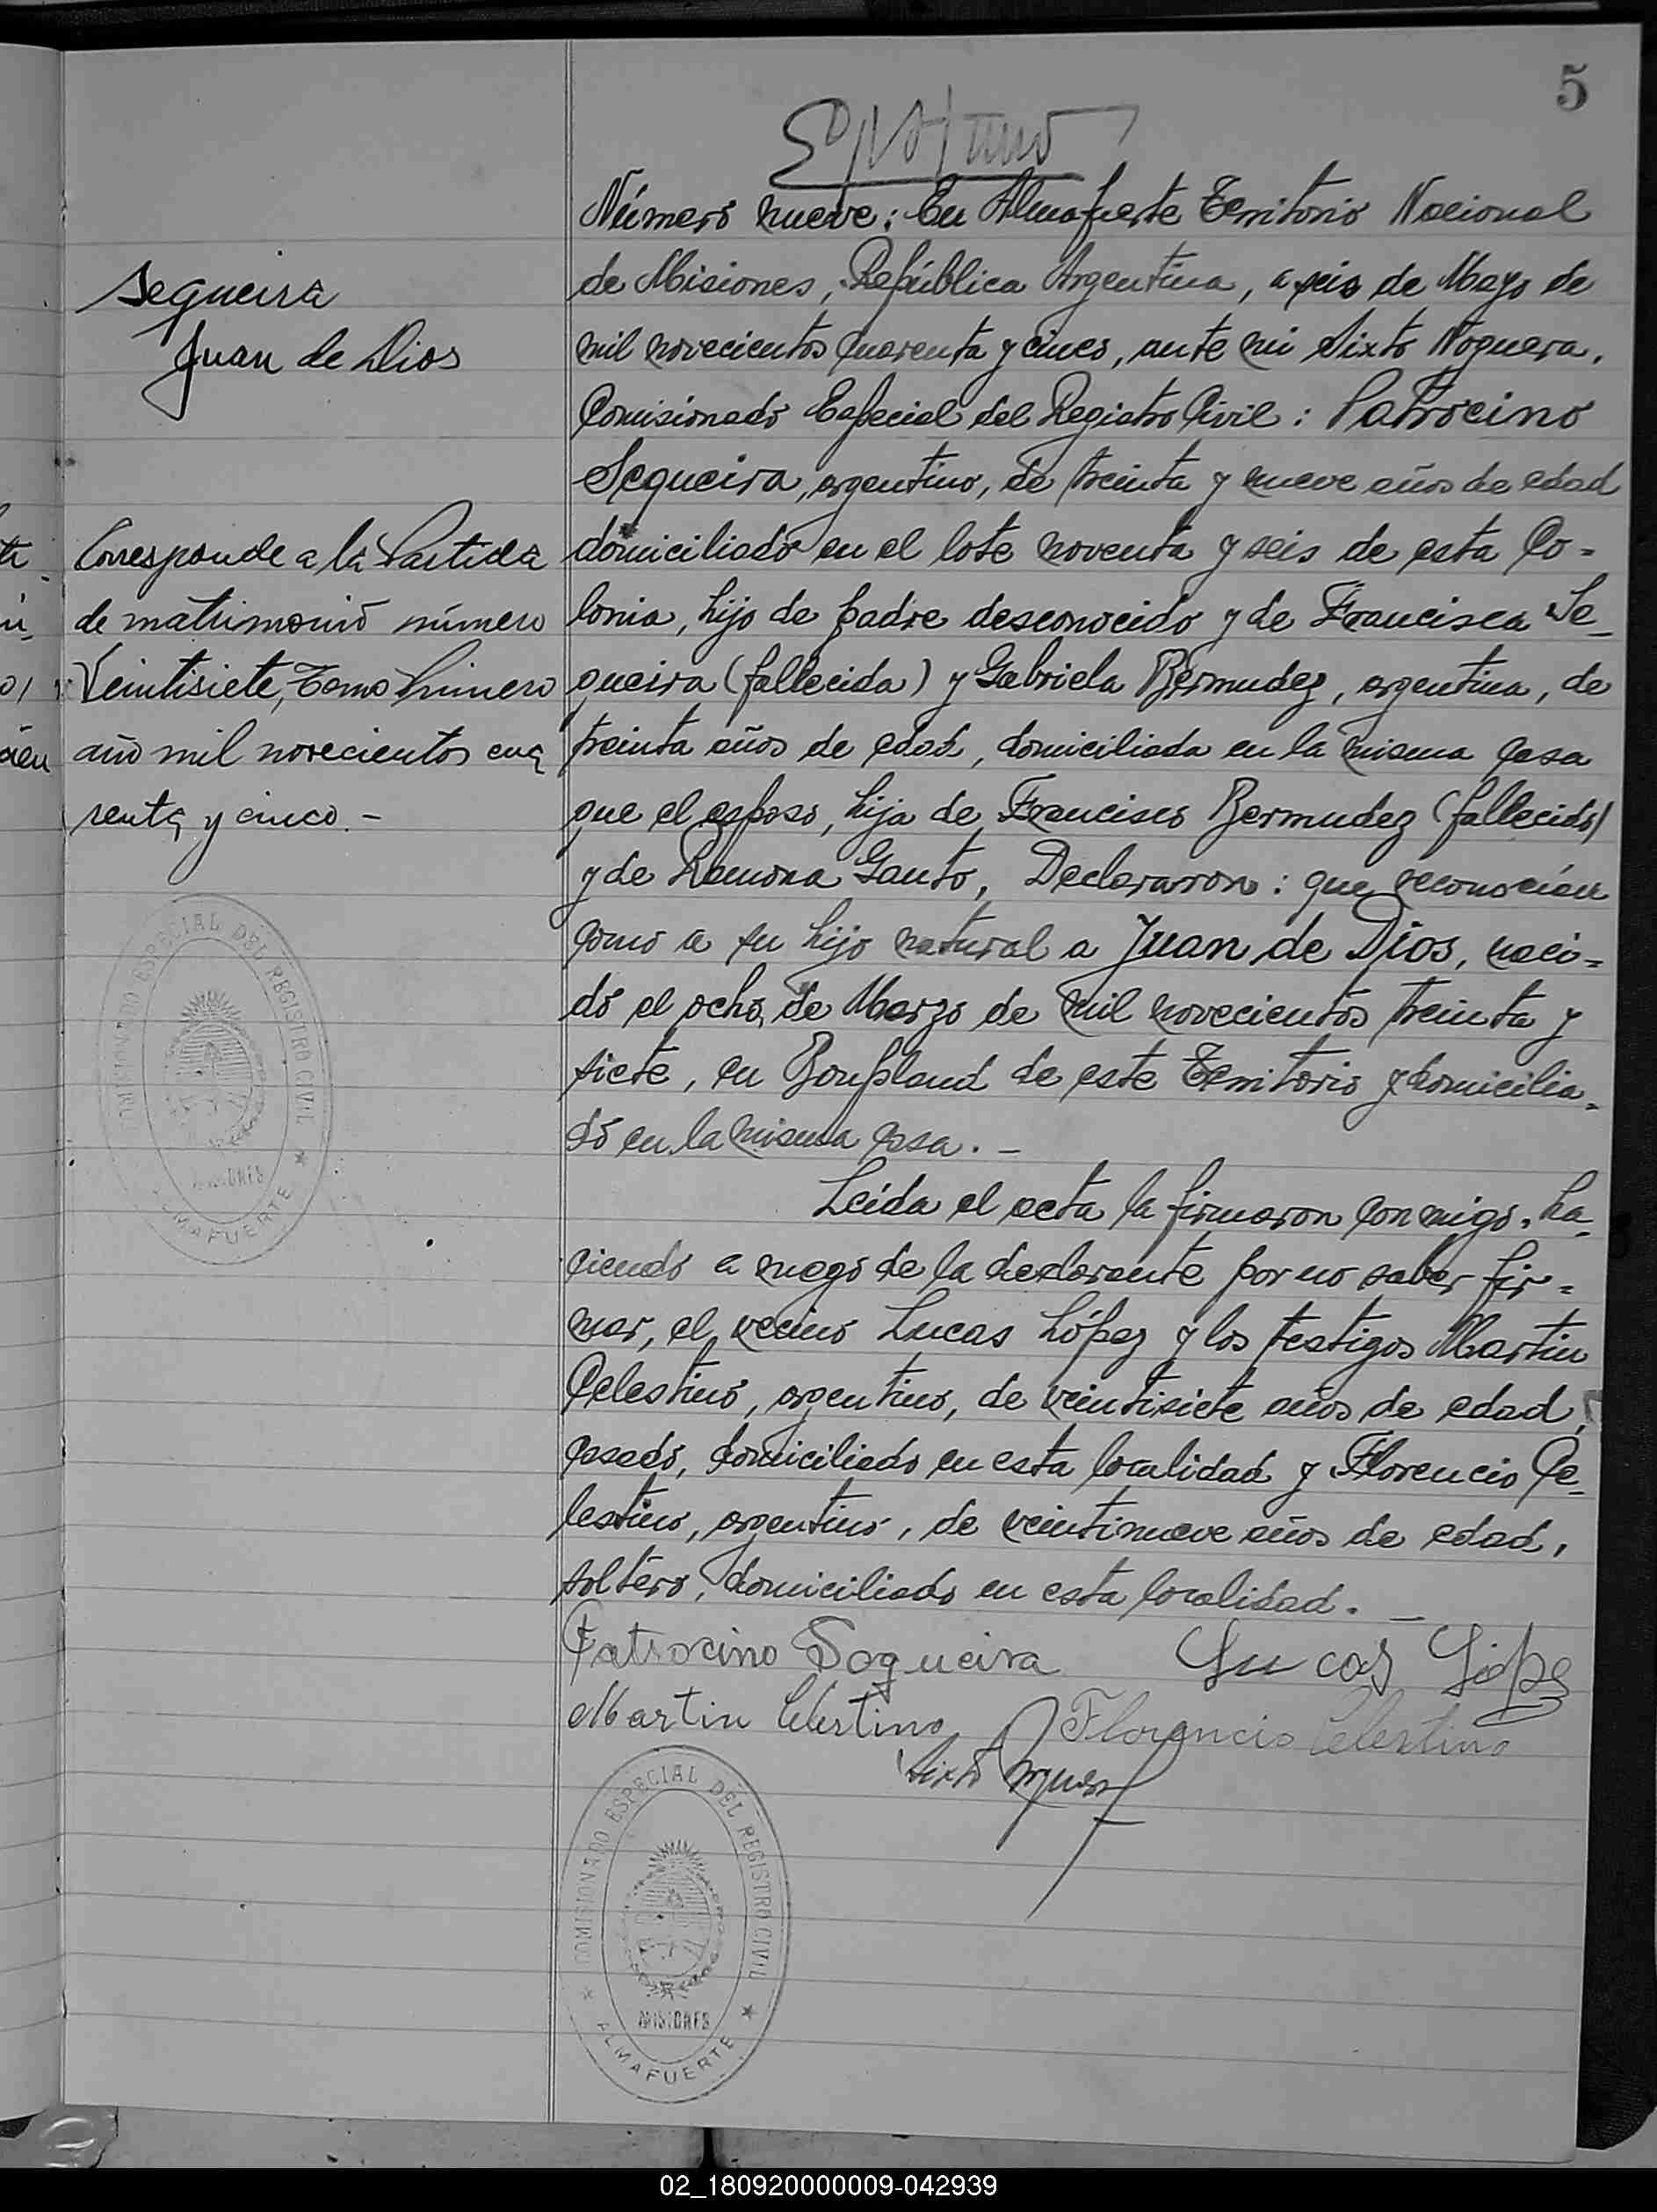 5
Número nueve: En Almafuerte Territorio Nacional
de Misiones, República Argentina, a seis de Mayo de
mil novecientos cuarenta y cinco, ante mi Sixto Noguera,
Comisionado Especial del Registro Civil: Patrocino
Sequeira, argentino, de treinta y nueve años de edad
domiciliado en el lote noventa y seis de esta Co=
lonia, hijo de padre desconocido y de Francisca Se_
queira (fallecida) y Gabriela Bermudez, argentina, de
treinta años de edad, domiciliada en la misma casa
que el esposo, hija de Francisco Bermudez (fallecido)
y de Ramona Gauto, Declararon: que reconocían
como a su hijo natural a Juan de Dios, naci=
do el ocho de Marzo de mil novecientos treinta y
siete, en Bonpland de este Territorio y domicilia_
do en la misma casa. _
Leída el acta la firmaron conmigo, ha_
ciendo a ruego de la declarante por no saber fir=
mar, el vecino Lucas López y los testigos Martin
Celestino, argentino, de veintisiete años de edad,
casado, domiciliado en esta localidad y Florencio Ce_
lestino, argentino, de veintinueve años de edad,
soltero, domiciliado en esta localidad. _
Patrocino Sogueira Lucas Lópe
Martin Celestino Florencio Celestino
Sixto Noguera
Sequeira
Juan de Dios
Corresponde a la Partida
de matrimonio número
Veintisiete, Tomo Primero
año mil novecientos cua
renta y cinco.-
COMISIONADO ESPECIAL DEL REGISTRO CIVIL
MISIONES
ALMAFUERTE
COMISIONADO ESPECIAL DEL REGISTRO CIVIL
MISIONES
ALMAFUERTE
02_180920000009-042939